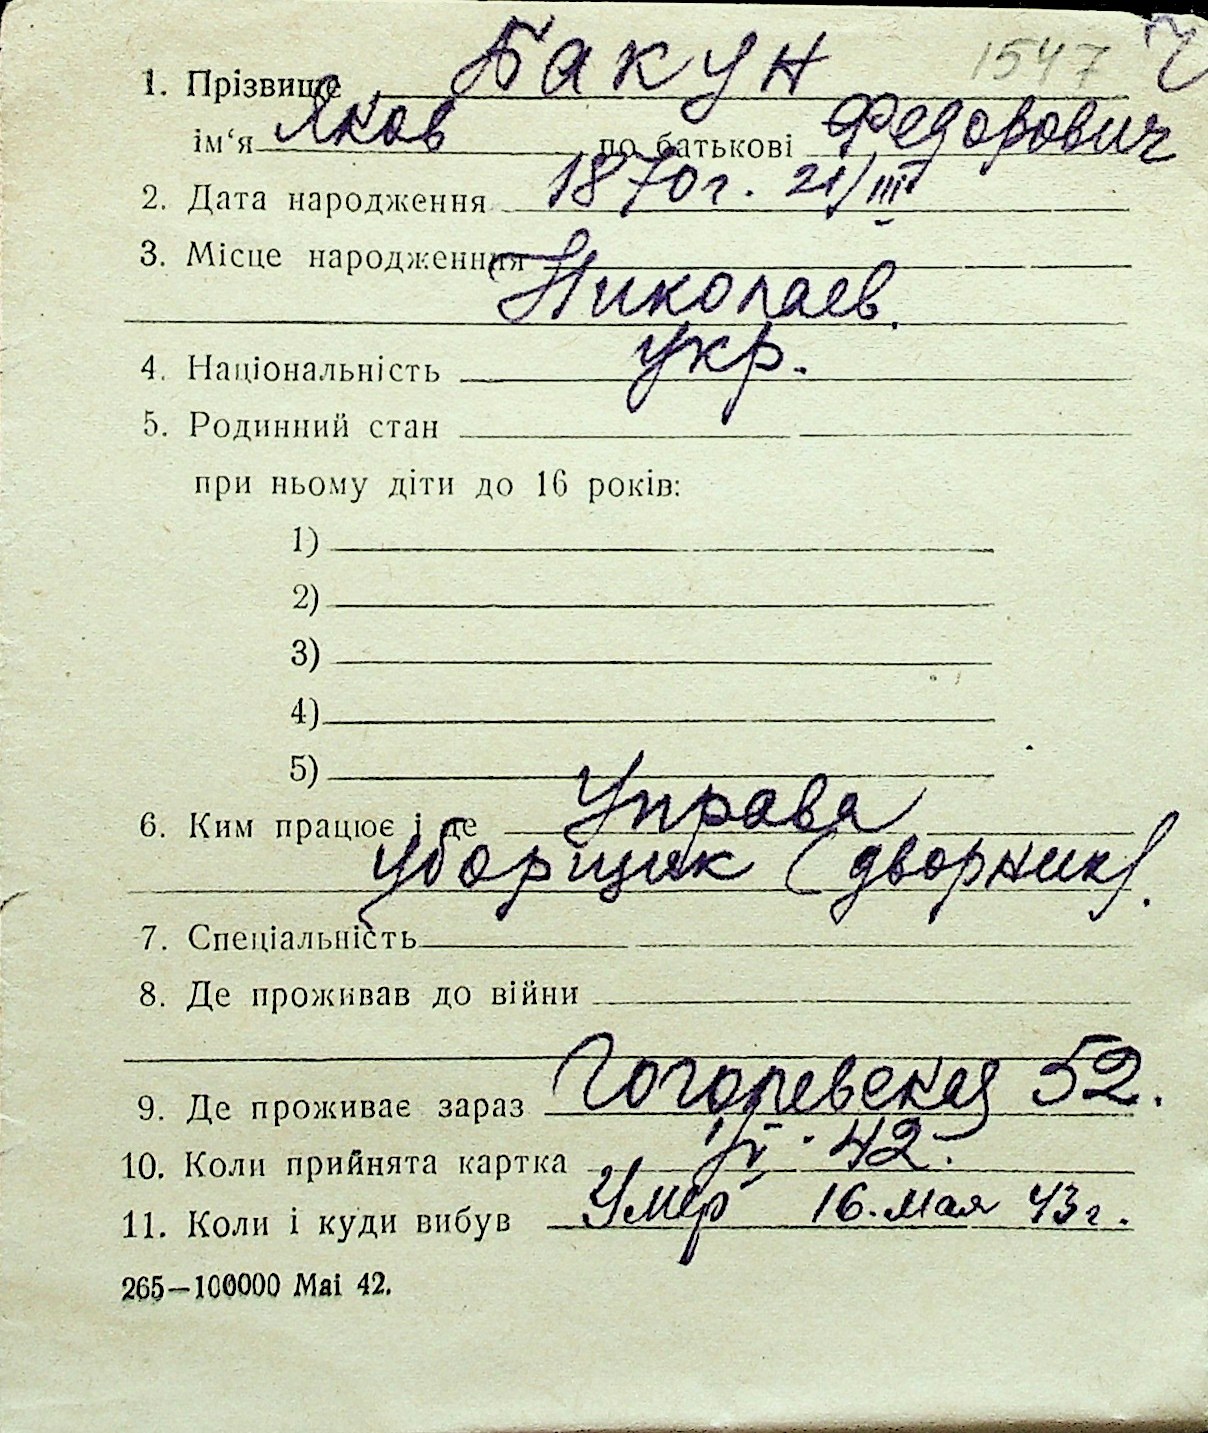 1547 Ч
1. Прізвище Бакун
ім‘я Яков по батькові Федорович
2. Дата народження 1870 г. 21/III
3. Місце народженння
Николаев.
4. Національність укр.
5. Родинний стан
при ньому діти до 16 років:
1)
2)
3)
4)
5)
6. Ким працює і де Управа
уборщик (дворник).
7. Спеціальність
8. Де проживав до війни
9. Де проживає зараз Гоголевская 52.
10. Коли прийнята картка 42.
11. Коли і куди вибув Умер 16. мая 43 г.
265—100000 Mai 42.